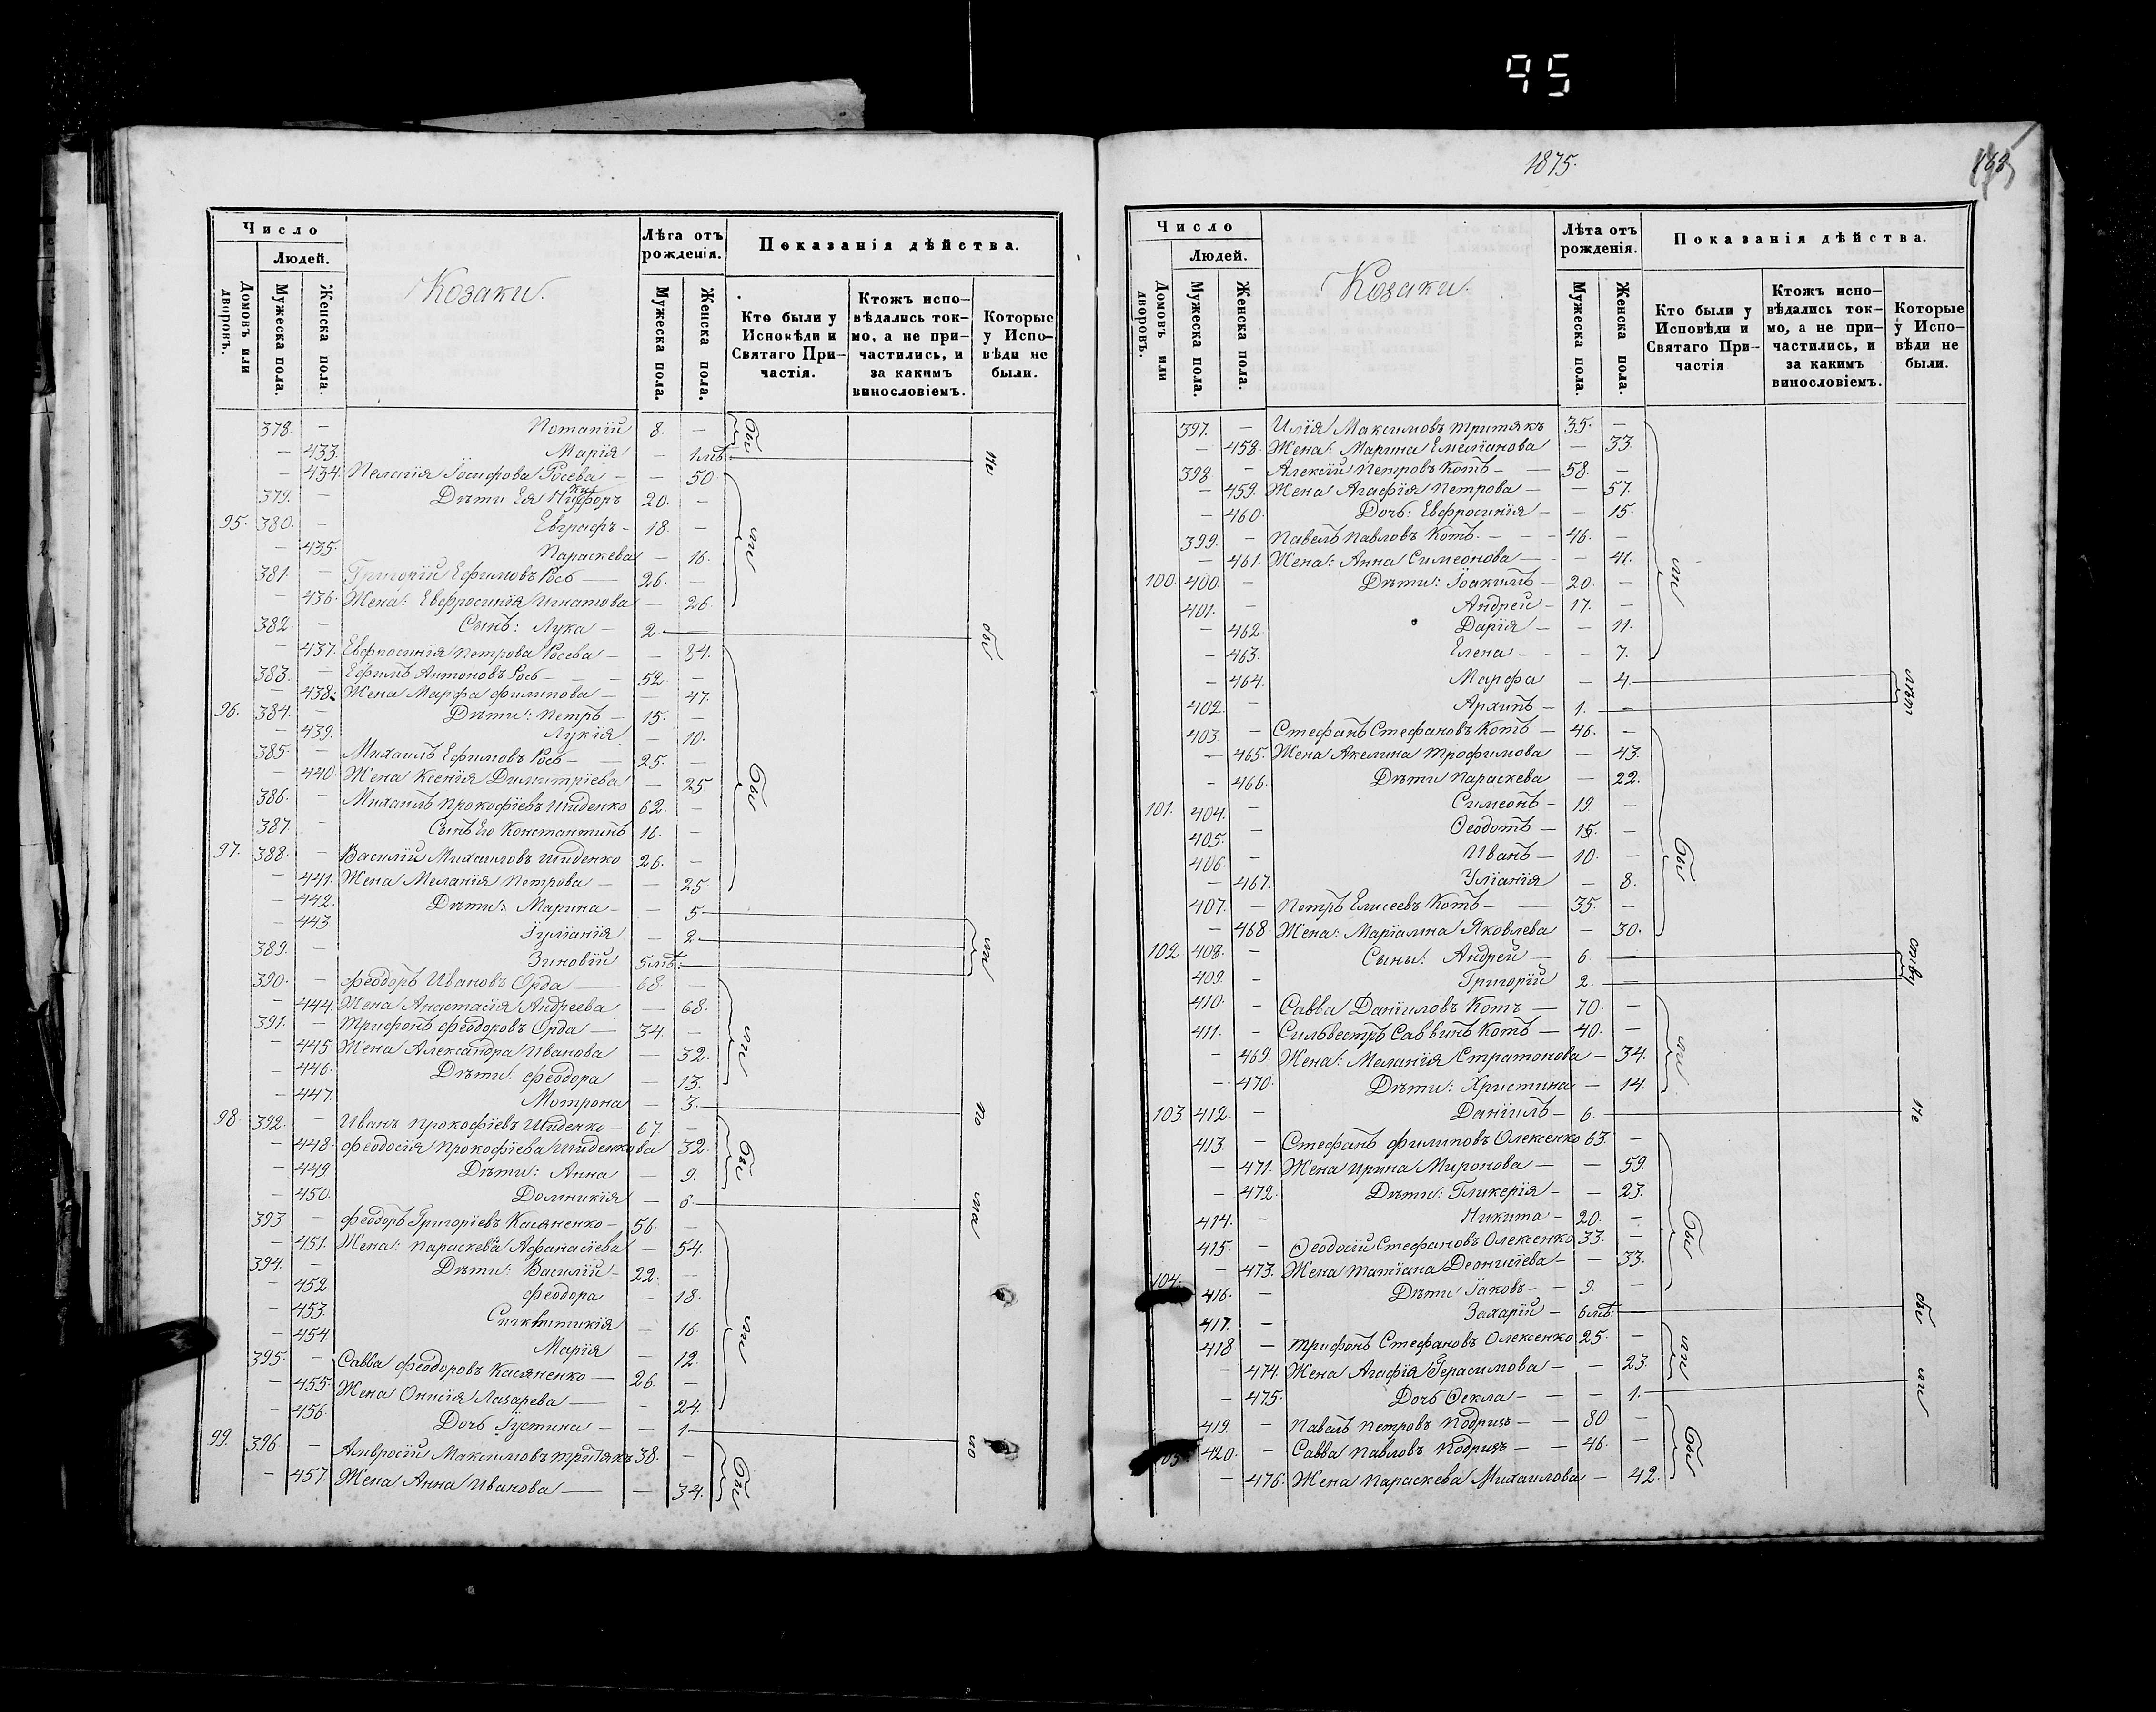 95
Число
Людей.
Домовъ или дворовъ.
Мужеска пола.
Женска пола.
Козаки.
Лѣта отъ рожденія.
Мужеска пола.
Женска пола.
Показанія дѣйства.
Кто были у Исповѣди и Святаго При-частія.
Ктожъ испо-вѣдались ток-мо, а не при-частились, и за какимъ винословіемъ.
Которые у Испо-вѣди не были.
378. — Потапій 8. —
— 433. Марія — 1 мѣ.
— 434. Пелагія Іосифова Росева — — 50
379. — Дѣти Ея Никифоръ 20. —
95. 380. — Евграфъ — 18. —
— 435. Параскева — 16.
381. — Григорій Ефимовъ Рось — 26. —
— 436. Жена: Евфросинія Игнатова — 26.
382. — Сынъ: Лука — 2.
— 437. Евфросинія Петрова Росева — — 84.
383. — Ефимъ Антоновъ Рось — 52. —
— 438. Жена Марфа Филипова — — 47.
96. 384. — Дѣти: Петръ — 15. —
— 439. Лукія — 10.
385. — Михаилъ Ефимовъ Рось — 25. —
— 440. Жена Ксенія Димитріева — 25
386. — Михаилъ Прокофіевъ Шиденко 62. —
387. — Сынъ Его Константинъ 16. —
97. 388. — Василій Михаиловъ Шиденко 26. —
— 441. Жена Меланія Петрова — — 25.
— 442. Дѣти: Марина — — 5
— 443. Іуліанія — 2
389. — Зиновій 5 мѣ.
390. — Феодоръ Ивановъ Орда — 68 —
— 444. Жена Анастасія Андреева — 68.
391. — Трифонъ Феодоровъ Орда — 34. —
— 445. Жена Александра Иванова — 32.
— 446. Дѣти: Феодора — 13.
— 447. Мотрона — 3.
98. 392. — Иванъ Прокофіевъ Шиденко — 67. —
— 448. Феодосія Прокофіева Шиденкова 32.
— 449 Дѣти: Анна — 9.
— 450. Домникія — 6
393 — Феодоръ Григоріевъ Касяненко — 56. —
— 451. Жена: Параскева Афанасіева — 54.
394. — Дѣти: Василій — 22. —
— 452. Феодора — 18.
— 453. Сигклитикія — 16.
— 454. Марія — 12.
395. — Савва Феодоровъ Касяненко — 26. —
— 455. Жена Онисія Лазарева — — 24.
— 456. Дочь Іустина — — 1
99. 396 — Амвросій Максимовъ Притякъ 38. —
— 457. Жена Анна Иванова — — 34.
1875.
Число
Людей.
Домовъ или дворовъ.
Мужеска пола.
Женска пола.
Козаки.
Лѣта отъ рожденія.
Мужеска пола.
Женска пола.
Показанія дѣйства.
Кто были у Исповѣди и Святаго При-частія
Ктожъ испо-вѣдались ток-мо, а не при-частились, и за какимъ винословіемъ.
Которые у Испо-вѣди не были.
397. — Илія Максимовъ Притякъ 35. —
— 458. Жена: Марина Емеліанова — 33.
398 — Алексій Петровъ Котъ — 58. —
— 459. Жена Агафія Петрова — — 57.
— 460. Дочь: Евфросинія — — 15.
399. — Павелъ Павловъ Котъ. — 46. —
— 461. Жена: Анна Симеонова — — 41.
100 400. — Дѣти: Іоакимъ — 20. —
401. — Андрей — 17. —
— 462. Дарія — — 11.
— 463. Елена — — 7.
— 464. Марфа — 4.
402. — Архипъ — 1. —
403. — Стефанъ Стефановъ Котъ — 46. —
— 465. Жена Акелина Трофимова — 43.
— 466. Дѣти Параскева — 22.
101. 404. — Симеонъ — 19. —
405. — Ѳеодотъ — 15. —
406. — Иванъ — 10. —
— 467. Уліанія — 8.
407. — Петръ Елисеевъ Котъ — 35. —
— 468 Жена: Маріамна Яковлева — 30.
102 408. — Сыны: Андрей — 6.
409. — Григорій 2.
410. — Савва Даніиловъ Котъ — 70. —
411. — Сильвестръ Саввинъ Котъ — 40. —
— 469. Жена: Меланія Стратонова — 34.
— 470. Дѣти: Христина — 14.
103 412. — Даніилъ — 6.
413. — Стефанъ Филиповъ Олексенко 63. —
— 471. Жена Ирина Миронова — — 59.
— 472. Дѣти: Гликерія — — 23.
414. — Никита — 20. —
415. — Ѳеодосій Стефановъ Олексенко 33. —
— 473. Жена Татіана Деонисіева — — 33.
104. 416. — Дѣти Іаковъ — 9. —
417. — Захарій — 6 мѣ.
418. — Трифонъ Стефановъ Олексенко 25. —
— 474. Жена Агафія Герасимова — — 23.
— 475. Дочь Ѳекла — — 1.
419. — Павелъ Петровъ Кодризъ — 80. —
105. 420. — Савва Павловъ Кодризъ — 46. —
— 476. Жена Параскева Михаилова — 42.